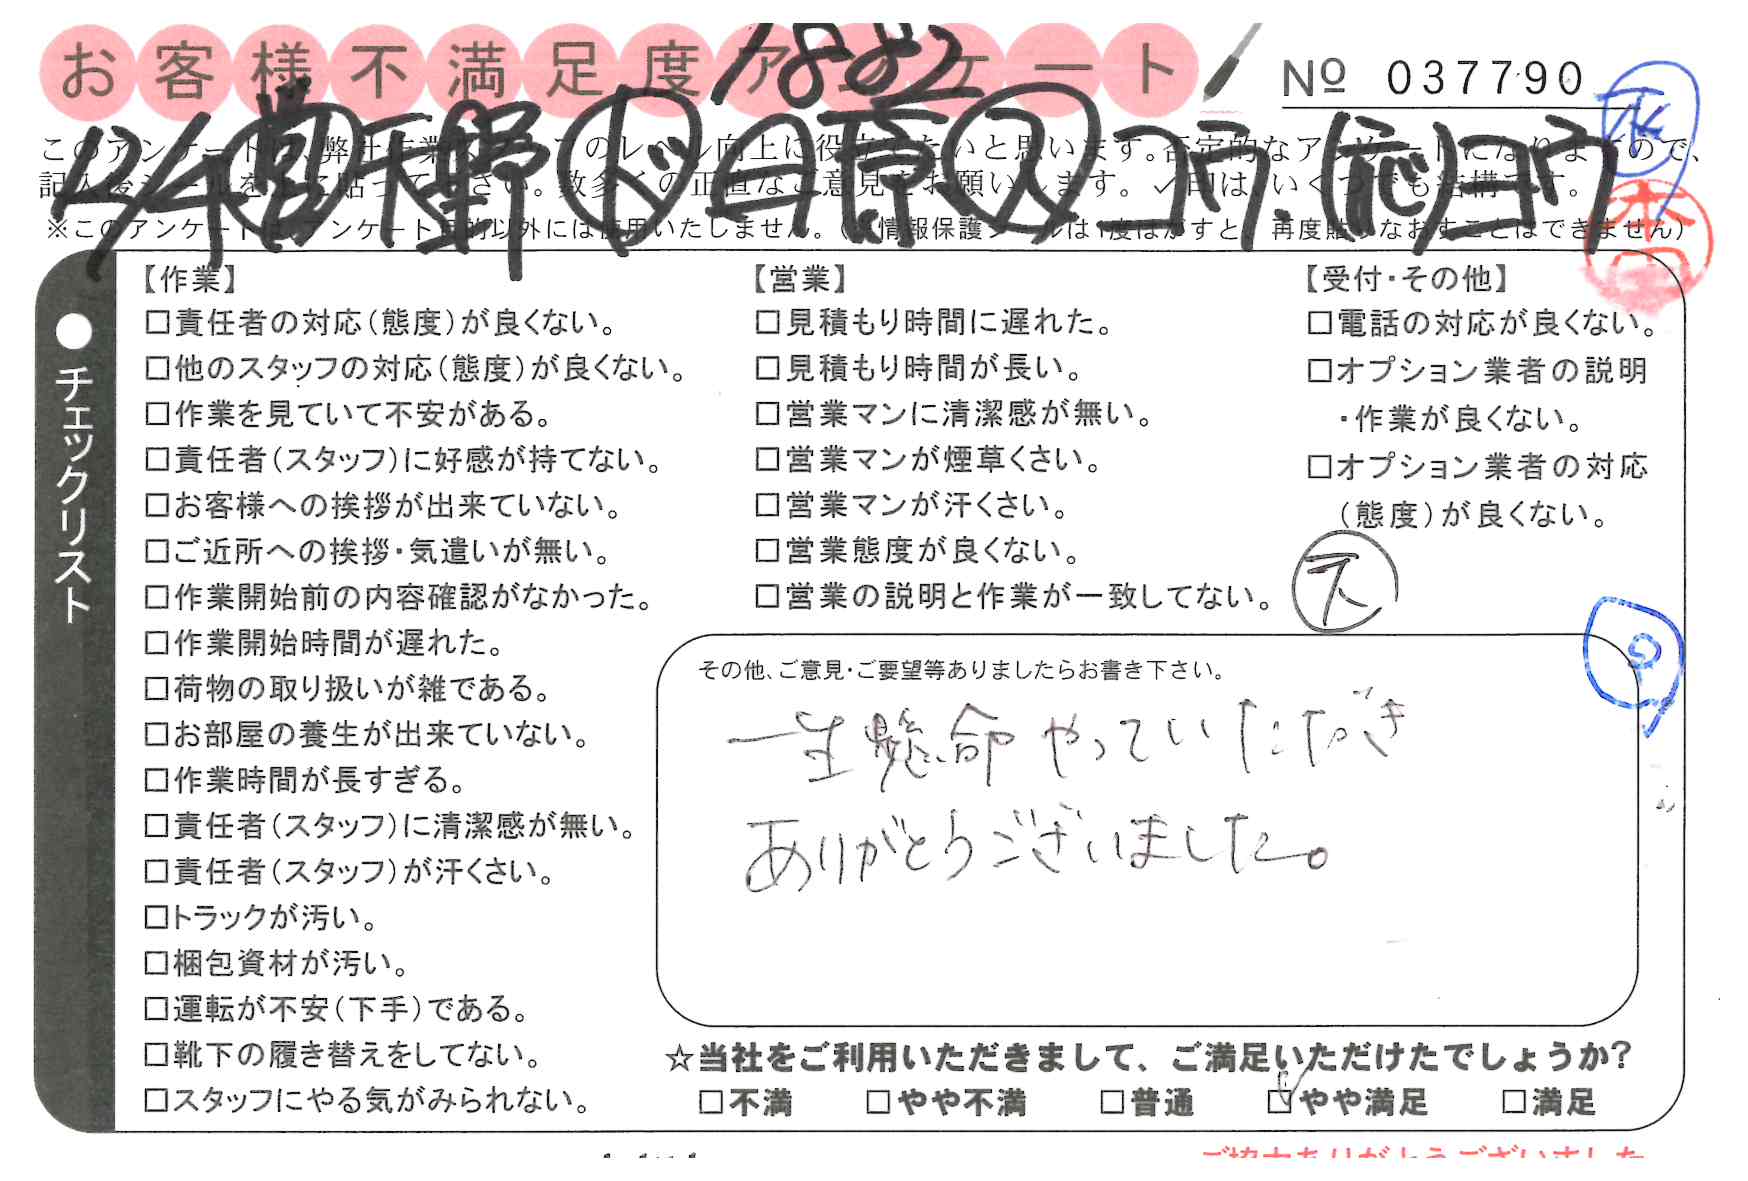 お客様不満足度アンケート
1882
№ 037790
このアンケートは、弊社作業スタッフのレベル向上に役立てたいと思います。否定的なアンケートになりますので、
記入後シールを上に貼って下さい。数多くの正直なご意見をお願いします。✓印は、いくつでも結構です。
※このアンケートは、アンケート目的以外には使用いたしません。(個情報保護シールは1度はがすと、再度貼りなおすことはできません)
天野 ド 日原 ス コウ.(応)ヨウ
●チェックリスト
【作業】
□責任者の対応(態度)が良くない。
□他のスタッフの対応(態度)が良くない。
□作業を見ていて不安がある。
□責任者(スタッフ)に好感が持てない。
□お客様への挨拶が出来ていない。
□ご近所への挨拶・気遣いが無い。
□作業開始前の内容確認がなかった。
□作業開始時間が遅れた。
□荷物の取り扱いが雑である。
□お部屋の養生が出来ていない。
□作業時間が長すぎる。
□責任者(スタッフ)に清潔感が無い。
□責任者(スタッフ)が汗くさい。
□トラックが汚い。
□梱包資材が汚い。
□運転が不安(下手)である。
□靴下の履き替えをしてない。
□スタッフにやる気がみられない。
【営業】
□見積もり時間に遅れた。
□見積もり時間が長い。
□営業マンに清潔感が無い。
□営業マンが煙草くさい。
□営業マンが汗くさい。
□営業態度が良くない。
□営業の説明と作業が一致してない。
【受付・その他】
□電話の対応が良くない。
□オプション業者の説明
・作業が良くない。
□オプション業者の対応
(態度)が良くない。
その他、ご意見・ご要望等ありましたらお書き下さい。
一生懸命やっていただき
ありがとうございました。
☆当社をご利用いただきまして、ご満足いただけたでしょうか?
□不満 □やや不満 □普通 ☑やや満足 □満足
ご協力ありがとうございました